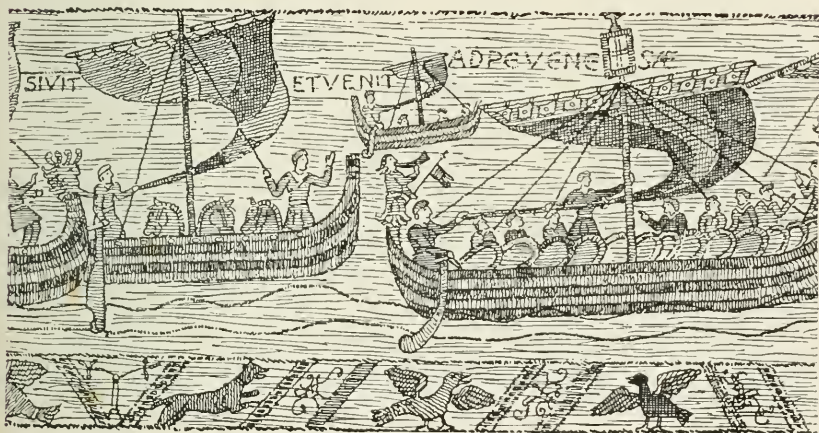 SIVIT ET VENIT AD PEVENE SÆ